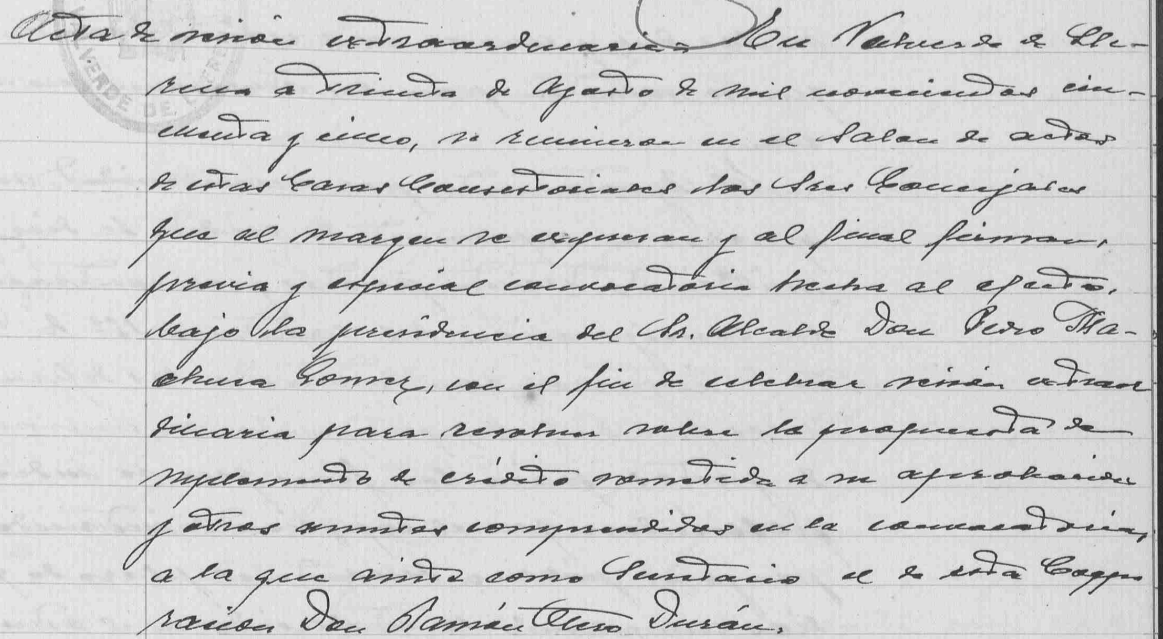 Acta de sesión extraordinaria = En Valverde de Lle-
rena a treinta de Agosto de mil novecientos cin-
cuenta y cinco, se reunieron en el Salon de actos
de estas Casas Consistoriales los Sres Concejales
que al margen se expresan y al final firman,
previa y especial convocatoria hecha al efecto,
bajo la presidencia del Sr. Alcalde Don Pedro Ma-
chuca Gomez, con el fin de celebrar sesión extraor
dinaria para resolver sobre la propuesta de
suplemento de crédito sometida a su aprobación
y otros asuntos comprendidos en la convocatoria,
a la que asiste como Secretario el de esta Corpo
ración Don Ramón Otero Durán.
VERDE DE